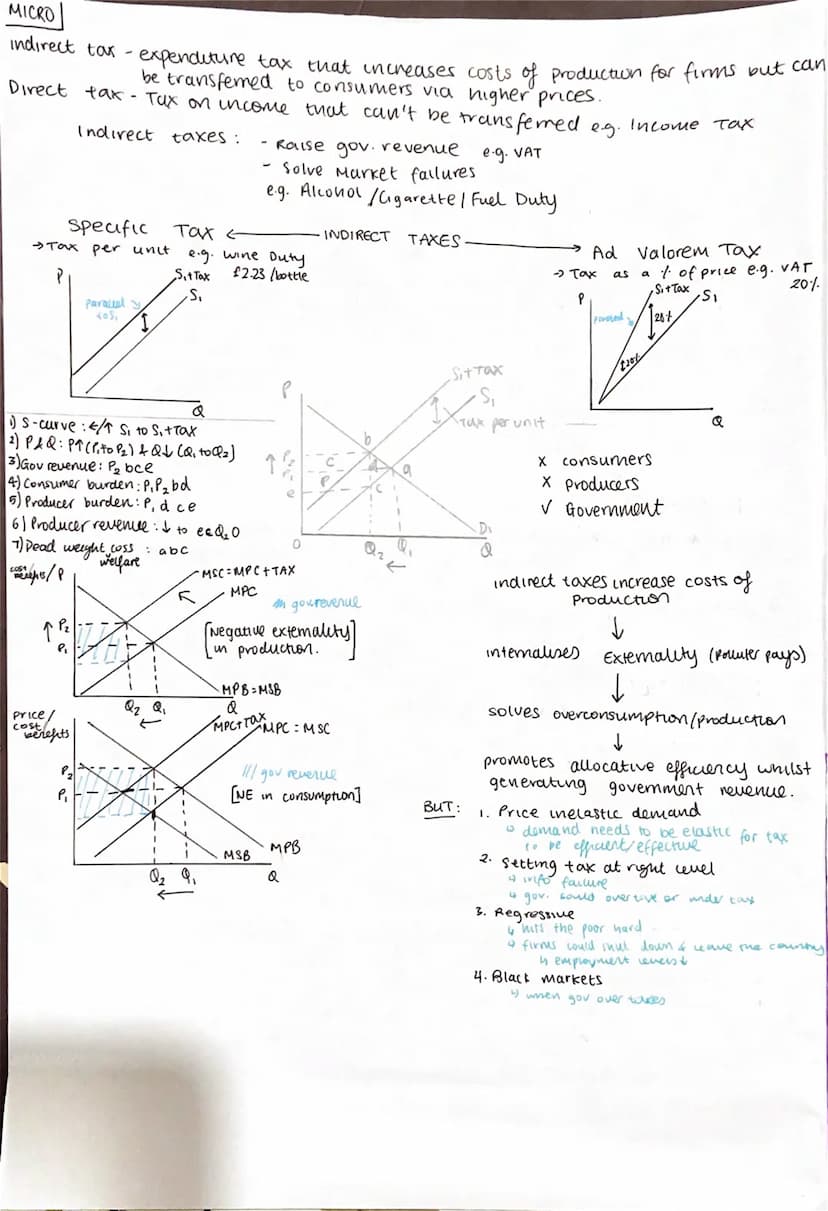 MICRO
Indirect tax - expenditure tax that increases costs of production for firms but can
be transferred to consumers via higher prices.
Direct tax - Tax on income that can't be transferred e.g. Income Tax
Indirect taxes: - Raise gov. revenue e.g. VAT
- Solve Market failures
e.g. Alcohol / Cigarette / Fuel Duty
Specific Tax ← INDIRECT TAXES → Ad Valorem Tax
→ Tax per unit e.g. Wine Duty
£2.23 /bottle
→ Tax as a % of price e.g. VAT
20%
P
S1+Tax
S1
parallel
to S1
Q
P
S1+Tax
S1
20%
Q
P
S1+Tax
S1
Tax per unit
b
P2
c
P1
d
a
P
e
c
D1
O
Q2
Q1
Q
1) S-curve: ←/↑ S1 to S1+Tax
2) P & Q: P↑ (P1 to P2) & Q↓ (Q1 to Q2)
3) Gov revenue: P2 bce
4) Consumer burden: P1P2bd
5) Producer burden: P1 d c e
6) Producer revenue: ↓ to ecQ2O
7) Dead weight loss : abc
welfare
x consumers
x Producers
✓ Government
cost/
benefits/P
MSC = MPC + TAX
MPC
gov revenue
P2
P1
[Negative externality
in production.]
MPB = MSB
Q2
Q1
Q
Price/
cost/
benefits
MPC+Tax
MPC = MSC
/// gov revenue
P2
P1
[NE in consumption]
MPB
MSB
Q2
Q1
Q
indirect taxes increase costs of
Production
↓
internalises Externality (Polluter pays)
↓
solves overconsumption/production
↓
promotes allocative efficiency whilst
generating government revenue.
BUT: 1. Price inelastic demand
↳ demand needs to be elastic for tax
to be efficient/effective
2. Setting tax at right level
↳ info failure
↳ gov. could over tax or under tax
3. Regressive
↳ hits the poor hard
↳ firms could shut down & leave the country
↳ employment levels↓
4. Black markets
↳ when gov over taxes